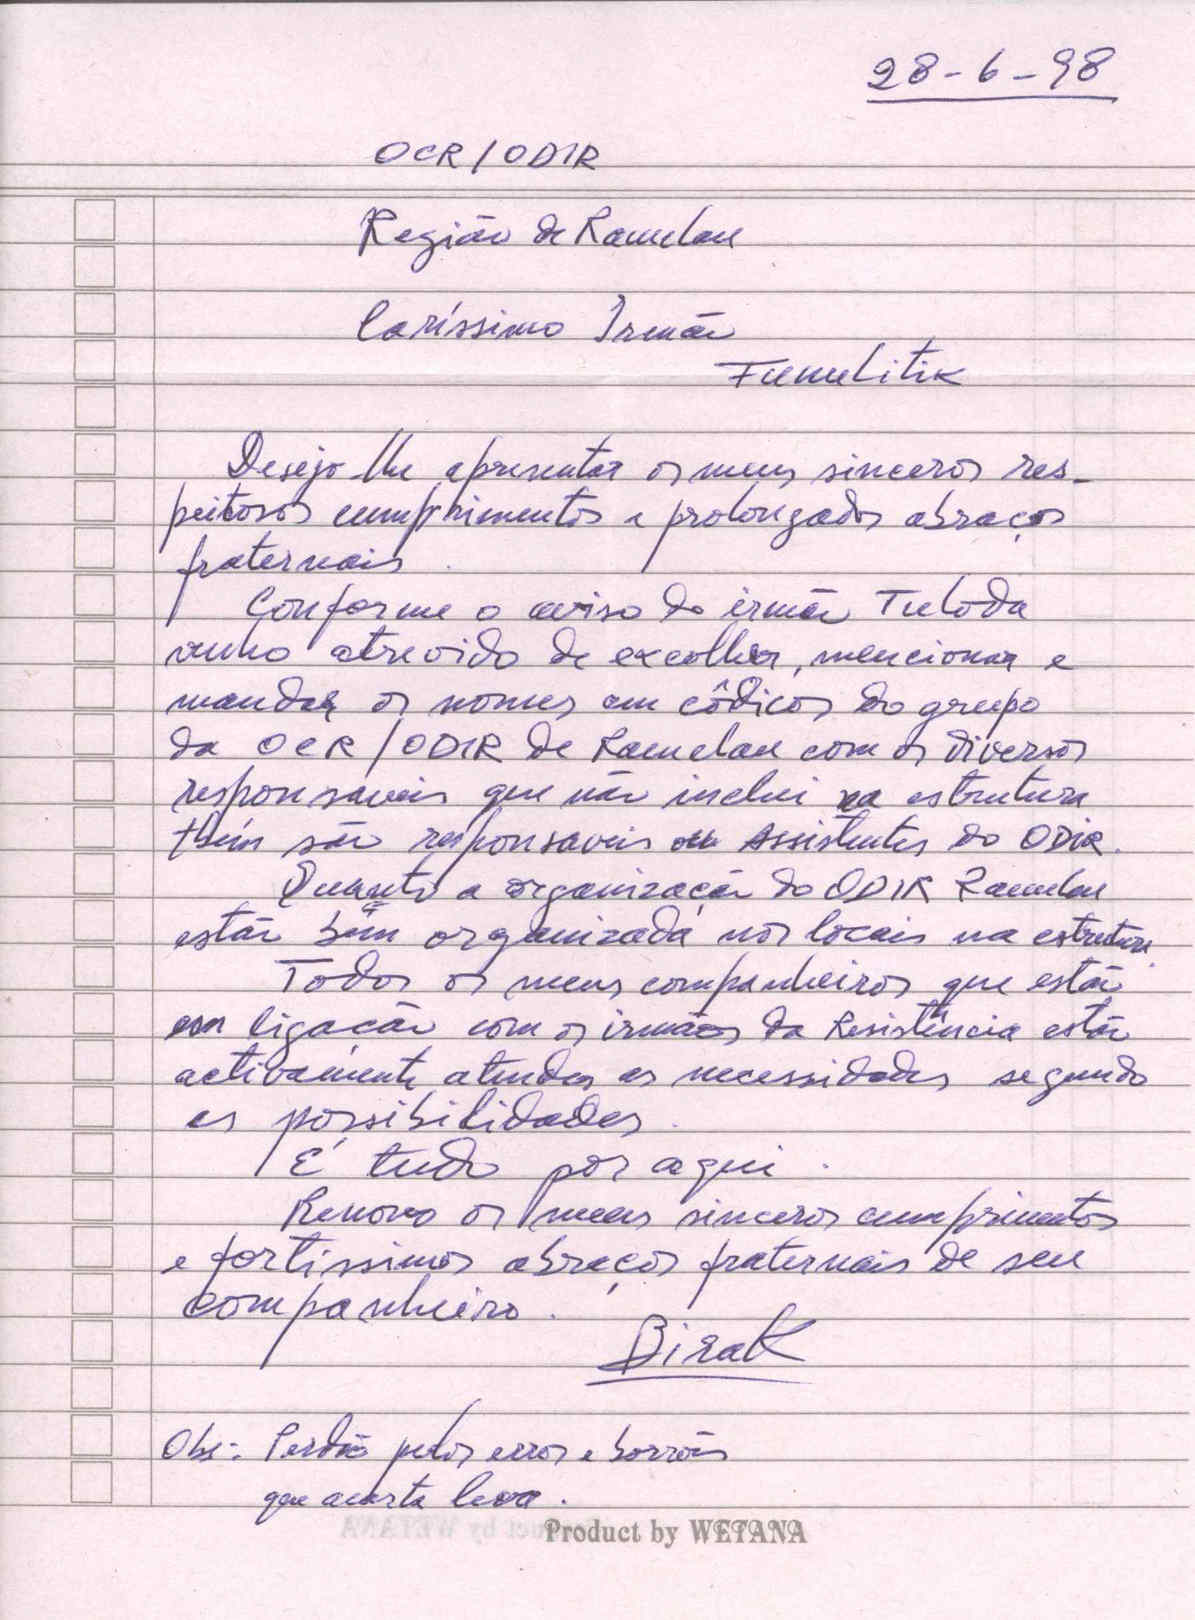 28-6-98
OCR/ODIR
Região de Ramelau
Caríssimo Irmão
Fumulitik
Desejo-lhe apresentar os meus sinceros res-
peitosos cumprimentos e prolongados abraços
fraternais.
Conforme o aviso do irmão Tuloda
venho atrevido de excolher, mencionar e
mandar os nomes em códicos do grupo
da OCR/ODIR de Ramelau com os diversos
responsaveis que não inclui na estrutura
tbém são responsaveis ou Assistentes do ODIR.
Quanto a organização do ODIR Ramelau
estão bém organizada nos locais na estrutura.
Todos os meus companheiros que estão
em ligação com os irmãos da Resistência estão
activamente atendes as necessidades segundo
as possibilidades.
É tudo por aqui.
Renovo os meus sinceros cumprimentos
e fortissimos abraços fraternais de seu
companheiro.
Birak
Obs: Perdão pelos erros e borrões
que acarta leva.
Product by WETANA